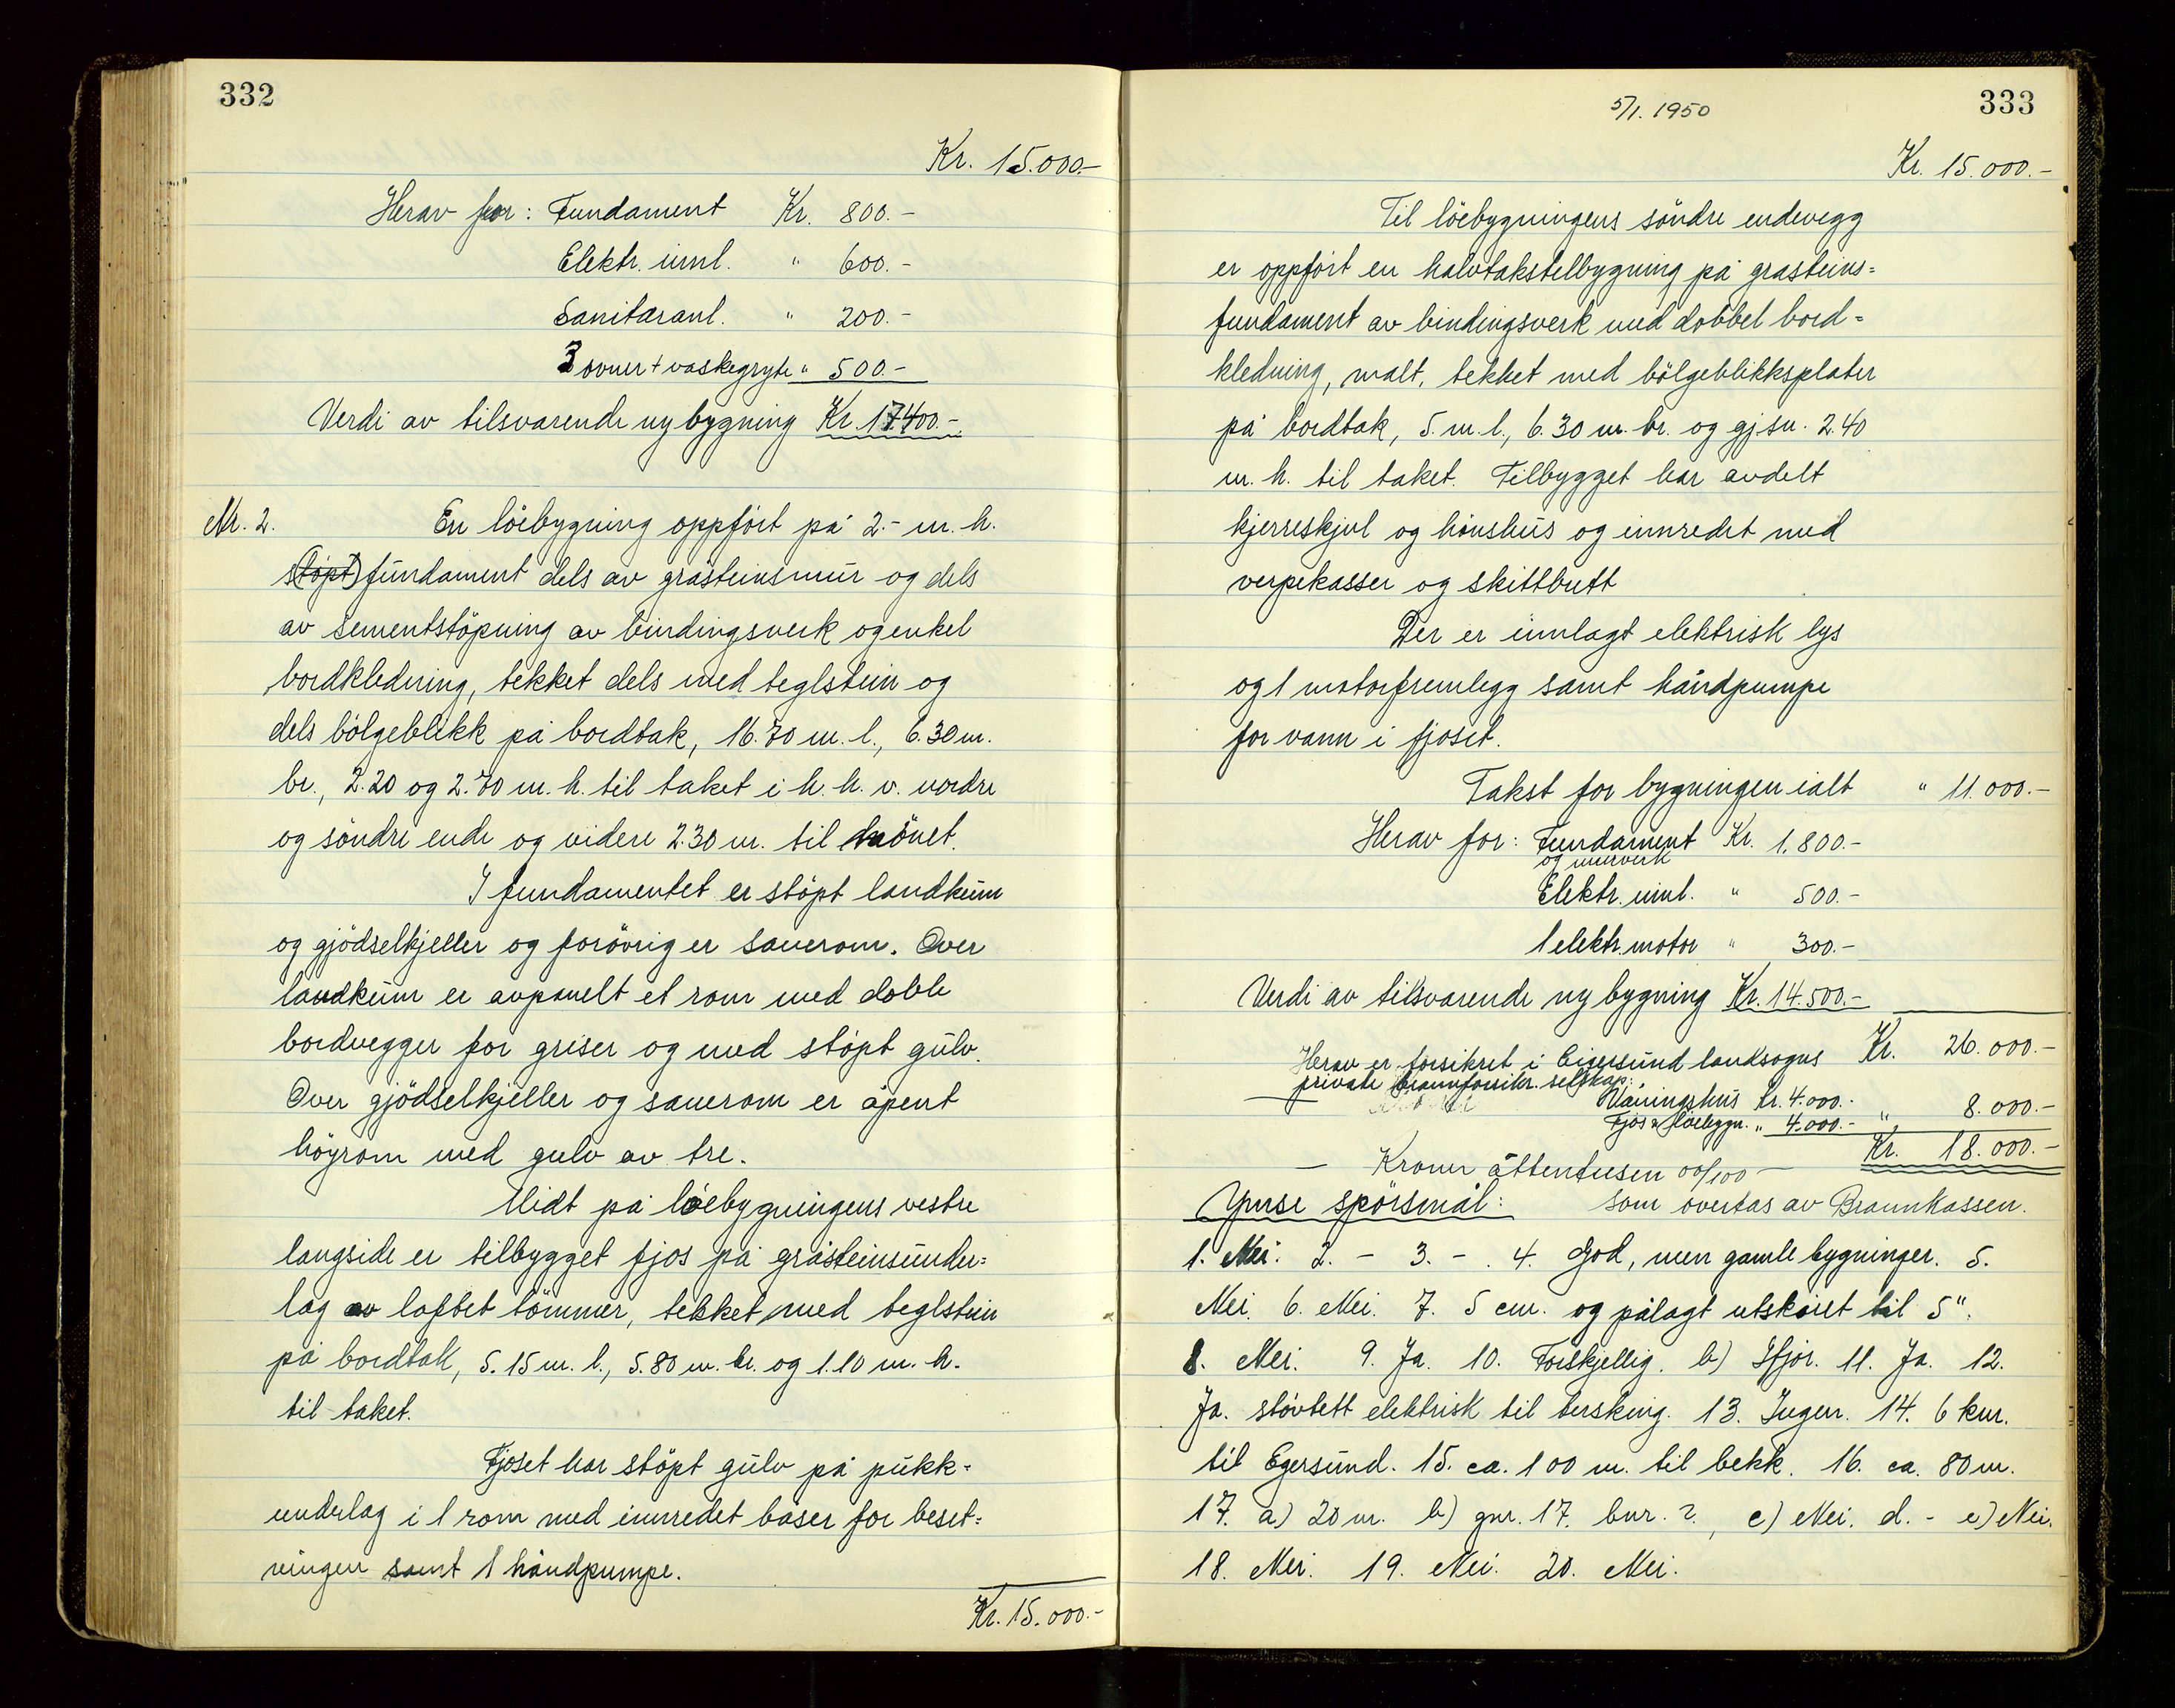 332
Kr. 15.000.-
Herav for: Fundament Kr. 800.-
Elektr. innl. " 600.-
Sanitæranl. " 200.-
3 ovner + vaskegryte " 500.-
Verdi av tilsvarende ny bygning Kr. 17.400.-
Nr. 2. En löebygning oppfört på 2.- m. h.
støpt fundament dels av gråsteinsmur og dels
av sementstöpning av bindingsverk og enkel
bordkledning, tekket dels med teglstein og
dels bölgeblikk på bordtak, 16.70 m. l., 6.30 m.
br., 2.20 og 2.70 m. h. til taket i h. h. v. nordre
og söndre ende og videre 2.30 m. til mönet.
I fundamentet er stöpt landkum
og gjödselkjeller og forövrig er sauerom. Over
landkum er avpanelt et rom med doble
bordvegger for griser og med stöpt gulv.
Over gjödselkjeller og sauerom er åpent
höyrom med gulv av tre.
Midt på löebygningens vestre
langside er tilbygget fjos på gråsteinsunder=
lag av laftet tömmer, tekket med teglstein
på bordtak, 5.15 m. l., 5.80 m. br. og 1.10 m. h.
til taket.
Fjöset har stöpt gulv på pukk-
underlag i 1 rom med innredet båser for beset=
ningen samt 1 håndpumpe.
Kr. 15.000.-
5/1. 1950
333
Kr. 15.000.-
Til löebygningens söndre endevegg
er oppfört en halvtakstilbygning på gråsteins=
fundament av bindingsverk med dobbel bord=
kledning, malt, tekket med bölgeblikksplater
på bordtak, 5. m. l., 6.30 m. br. og gj.sn. 2.40
m. h. til taket. Tilbygget har avdelt
kjerreskjul og hönshus og innredet med
verpekasser og skittbrett
Der er innlagt elektrisk lys
og 1 motorfremlegg samt håndpumpe
for vann i fjoset.
Takst for bygningen ialt " 11.000.-
Herav for: Fundament Kr. 1.800.-
og murverk
Elektr. innl. " 500.-
1 elektr. motor " 300.-
Verdi av tilsvarende ny bygning Kr. 14.500.-
Kr. 26.000.-
Herav er forsikret i Eigersund landsogns
private brannforsikr. selskap:
Våningshus Kr. 4.000.-
Fjos & löebygn. " 4.000.- " 8.000.-
Kr. 18.000.-
- Kroner åttentusen 00/100 -
Ymse spörsmål: som overtas av Brannkassen.
1. Nei. 2. - 3. - . 4. God, men gamle bygninger. 5.
Nei. 6. Nei. 7. 5 cm. og pålagt utskåret til 5".
8. Nei. 9. Ja. 10. Forskjellig. b) Ifjor. 11. Ja. 12.
Ja. stövtett elektrisk til tersking. 13. Ingen. 14. 6 km.
til Egersund. 15. ca. 100 m. til bekk. 16. ca. 80 m.
17. a) 20 m. b) gnr. 17. bnr. 2., c) Nei. d. - e) Nei.
18. Nei. 19. Nei. 20. Nei.